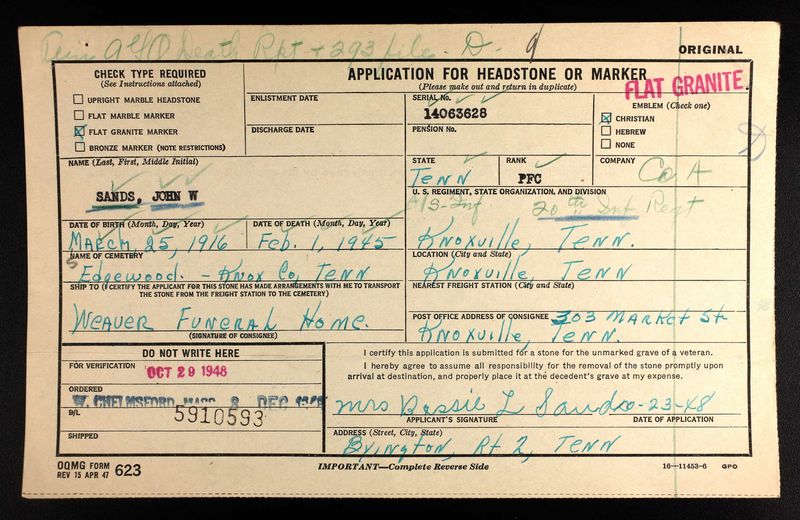 Tenn AGO Death Rpt + 293 file - D. 9
ORIGINAL
CHECK TYPE REQUIRED
(See Instructions attached)
UPRIGHT MARBLE HEADSTONE
FLAT MARBLE MARKER
FLAT GRANITE MARKER
BRONZE MARKER (NOTE RESTRICTIONS)
APPLICATION FOR HEADSTONE OR MARKER
(Please make out and return in duplicate)
FLAT GRANITE
ENLISTMENT DATE
DISCHARGE DATE
SERIAL No.
14063628
PENSION No.
EMBLEM (Check one)
CHRISTIAN
HEBREW
NONE
NAME (Last, First, Middle Initial)
SANDS, JOHN W
STATE
TENN
RANK
PFC
COMPANY
Co A
U. S. REGIMENT, STATE ORGANIZATION, AND DIVISION
20th Inf Regt
DATE OF BIRTH (Month, Day, Year)
MARCH 25, 1916
DATE OF DEATH (Month, Day, Year)
Feb. 1, 1945
Knoxville, Tenn.
NAME OF CEMETERY
Edgewood. - Knox Co, Tenn
LOCATION (City and State)
Knoxville, Tenn
SHIP TO (I CERTIFY THE APPLICANT FOR THIS STONE HAS MADE ARRANGEMENTS WITH ME TO TRANSPORT
THE STONE FROM THE FREIGHT STATION TO THE CEMETERY)
NEAREST FREIGHT STATION (City and State)
WEAVER FUNERAL HOME.
(SIGNATURE OF CONSIGNEE)
POST OFFICE ADDRESS OF CONSIGNEE 303 MARKET St
Knoxville, Tenn.
DO NOT WRITE HERE
FOR VERIFICATION
OCT 29 1948
ORDERED
W. CHELMSFORD, MASS 8 DEC 1948
B/L
5910593
SHIPPED
I certify this application is submitted for a stone for the unmarked grave of a veteran.
I hereby agree to assume all responsibility for the removal of the stone promptly upon
arrival at destination, and properly place it at the decedent's grave at my expense.
Mrs Bessie L Sands 10-23-48
APPLICANT'S SIGNATURE
DATE OF APPLICATION
ADDRESS (Street, City, State)
Byington, Rt 2, Tenn
OQMG FORM
REV 15 APR 47
623
IMPORTANT—Complete Reverse Side
16—11453-6 GPO